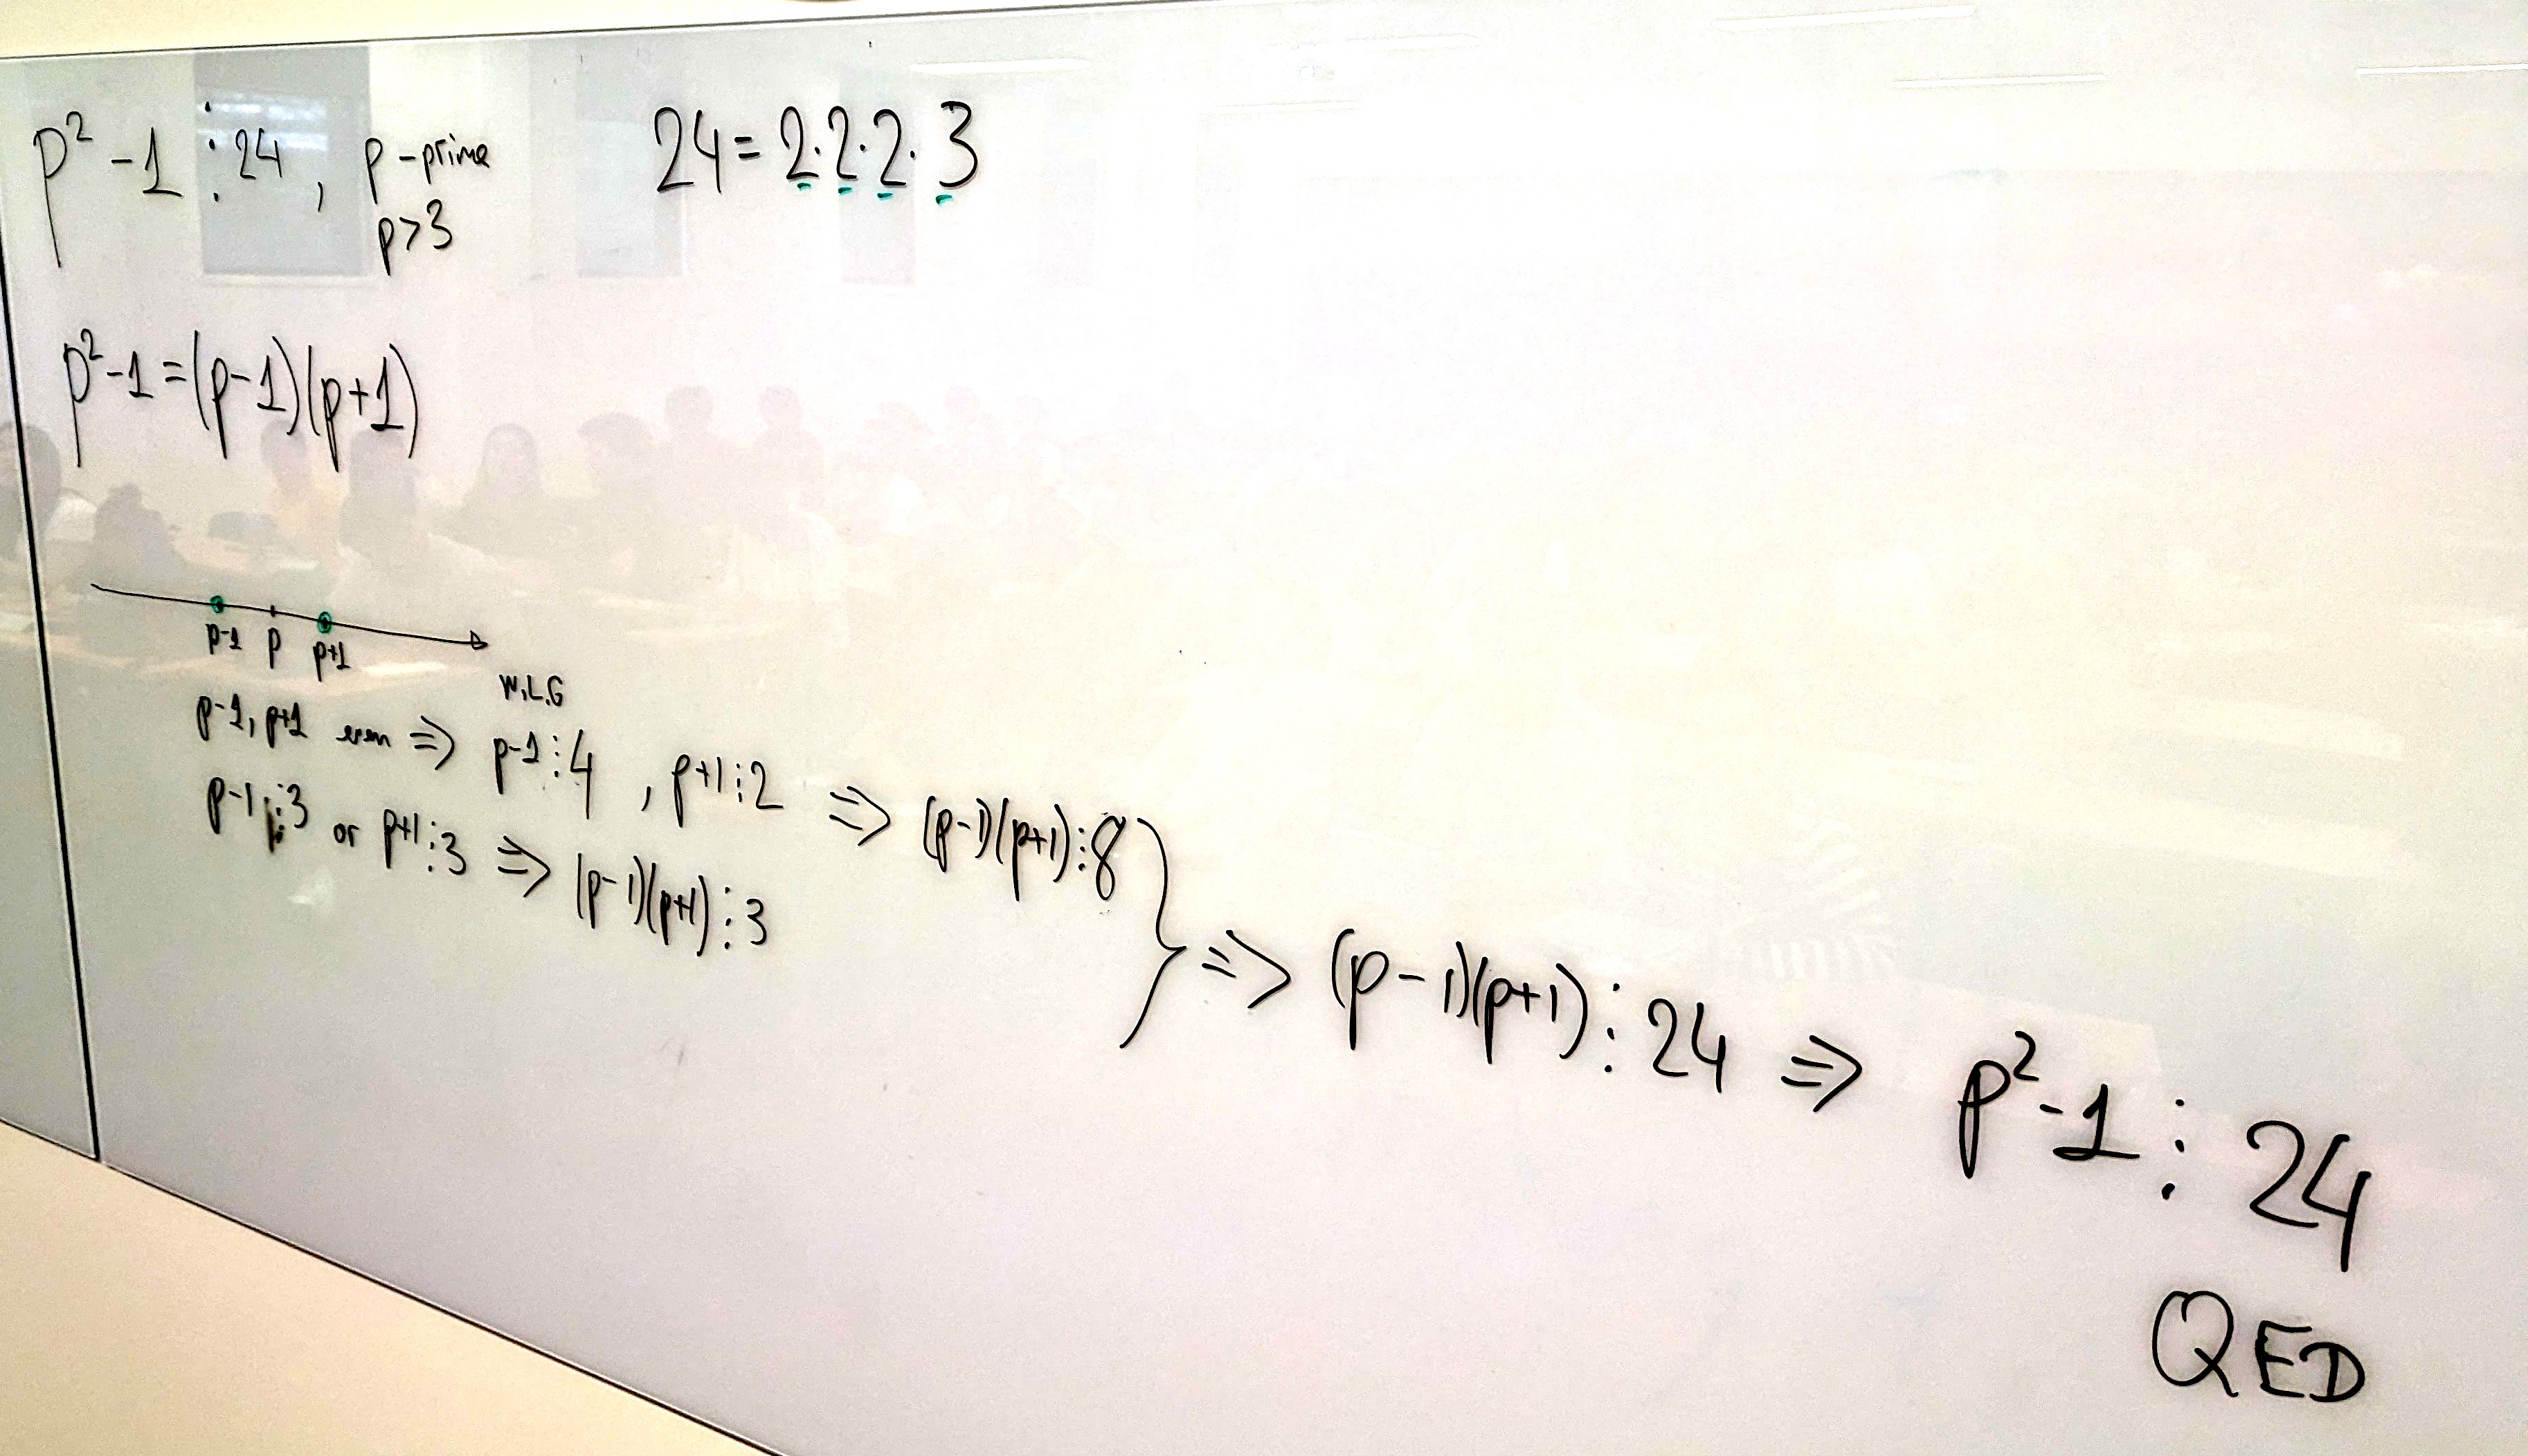 p² -1 ⋮ 24 , p - prime
p>3
24 = 2·2·2·3
p²-1=(p-1)(p+1)
p-1 p p+1
W.L.G
p-1, p+1 even => p-1⋮4 , p+1⋮2 => (p-1)(p+1)⋮8
p-1⋮3 or p+1⋮3 => (p-1)(p+1)⋮3
=> (p-1)(p+1)⋮24 => p²-1⋮24
QED